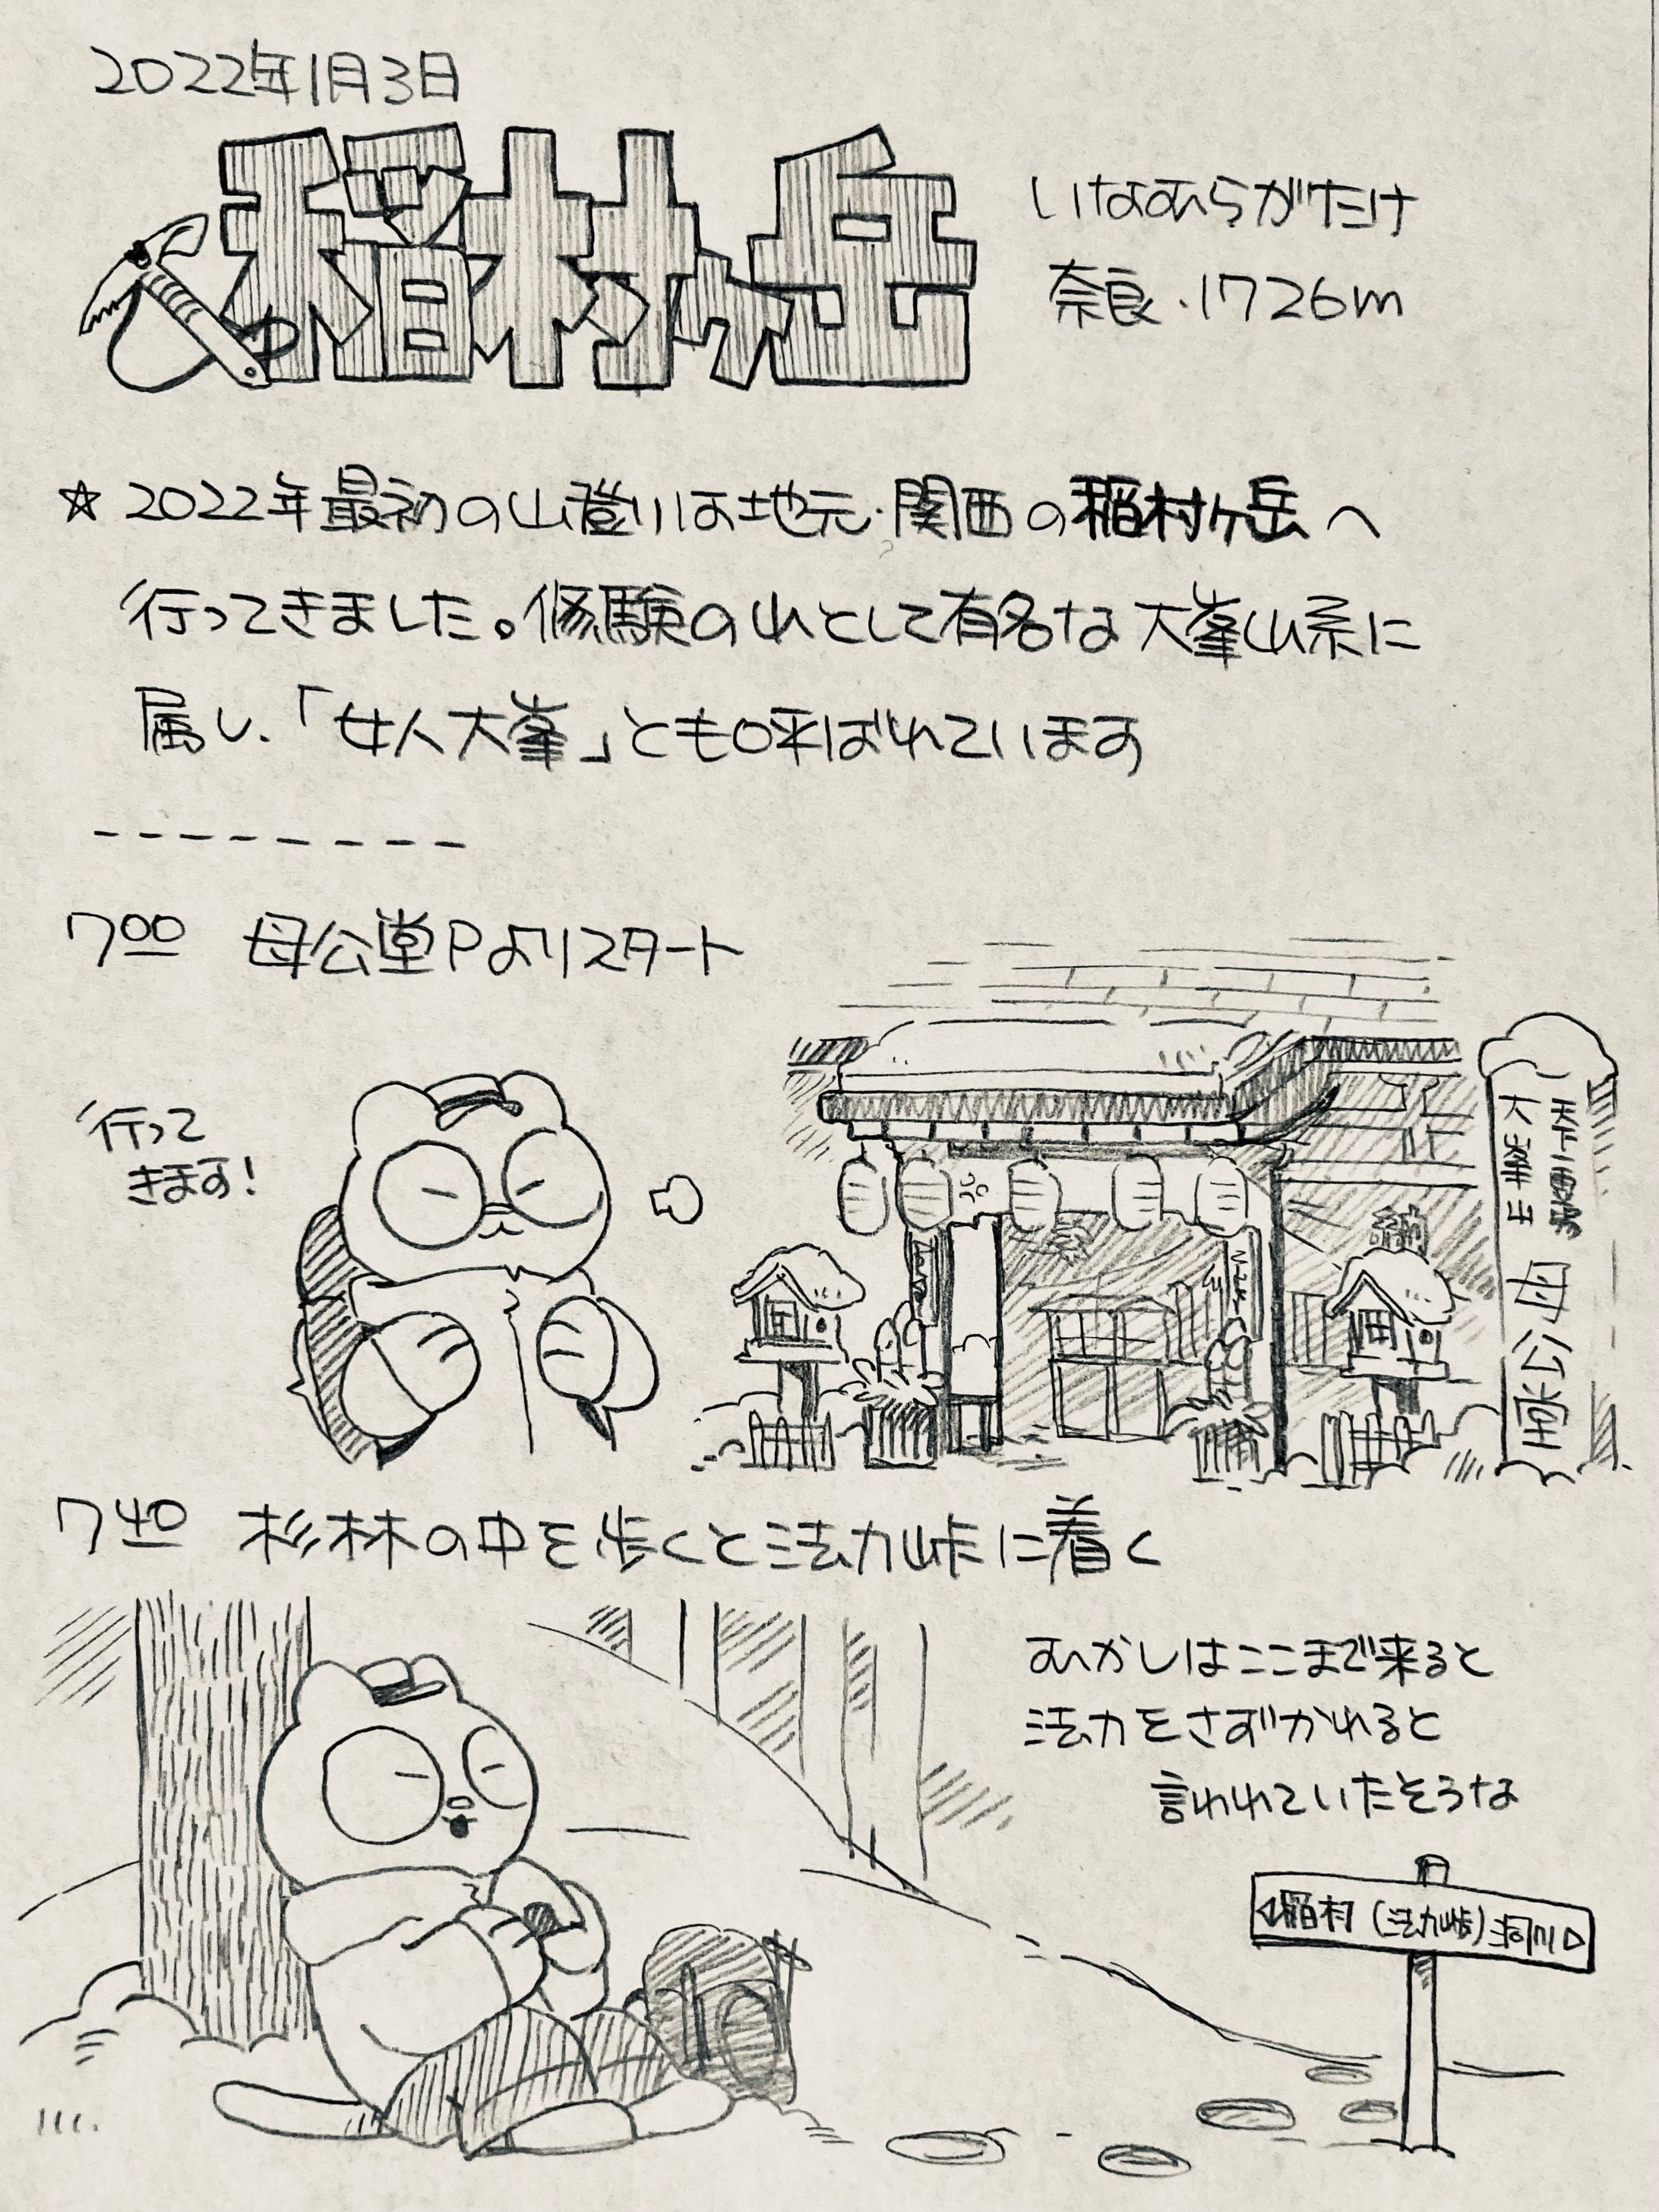 2022年1月3日
稲村ヶ岳
いなむらがたけ
奈良・1726m
☆2022年最初の山登りは地元・関西の稲村ヶ岳へ
行ってきました。修験の山として有名な大峯山系に
属し、「女人大峯」とも呼ばれています
7:00 母公堂Pよりスタート
行って
きます!
母公堂
7:40 杉林の中を歩くと法力峠に着く
むかしはここまで来ると
法力をさずかれると
言われていたそうな
◁稲村 (法力峠) 洞川▷